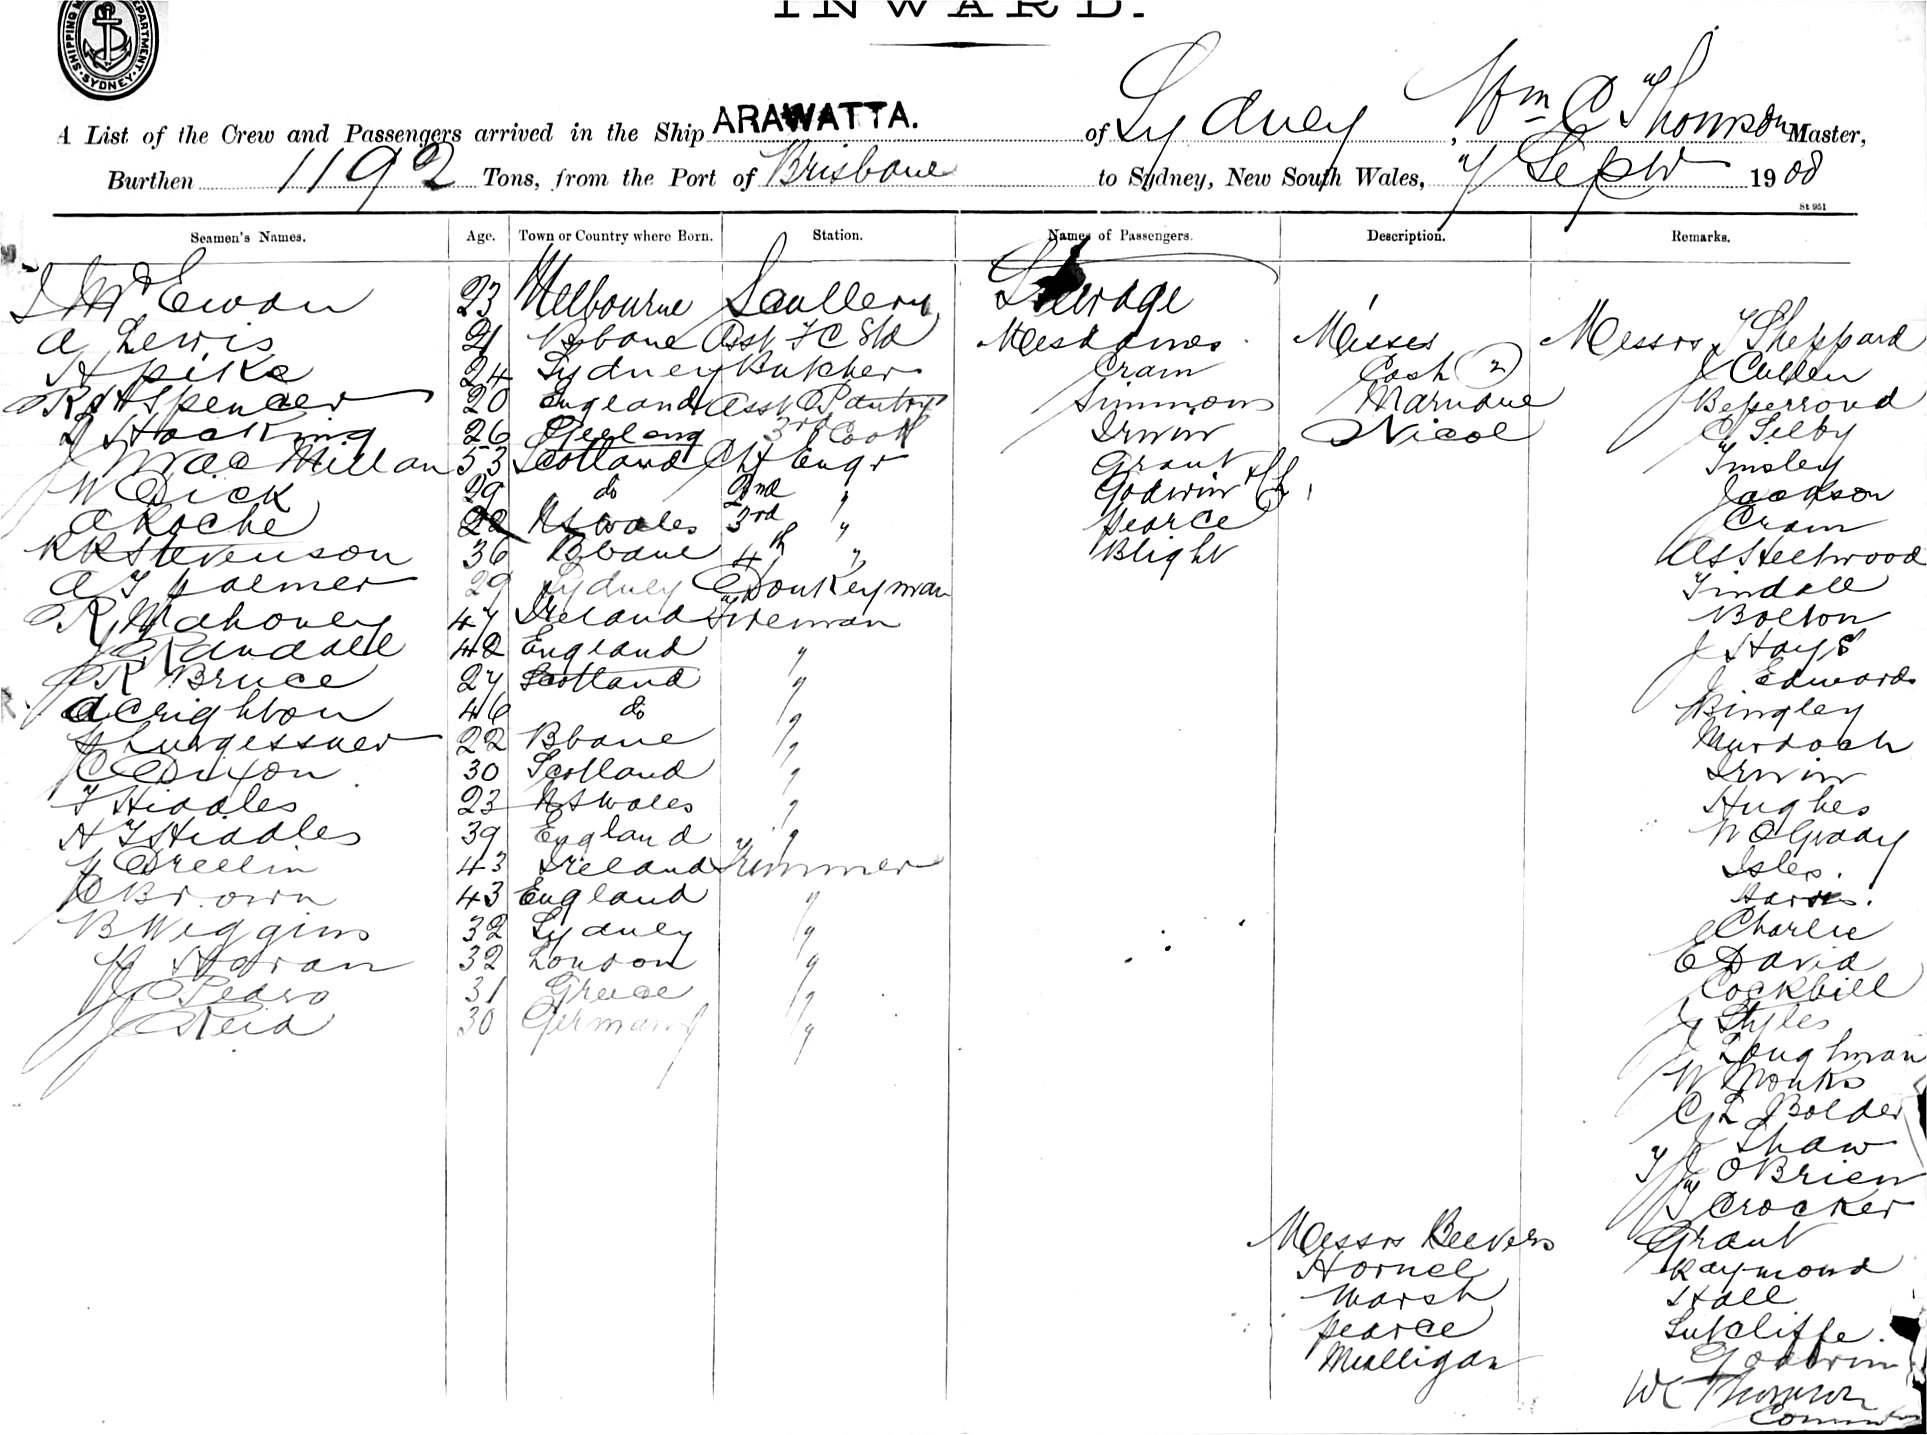 INWARD.
SHIPPING DEPARTMENT. SYDNEY.
A List of the Crew and Passengers arrived in the Ship ARAWATTA. of Sydney, Wm C Thomson Master,
Burthen 1192 Tons, from the Port of Brisbane to Sydney, New South Wales, 7 Sepr 1908
St 951
Seamen's Names. Age. Town or Country where Born. Station. Names of Passengers. Description. Remarks.
J McEwan 23 Melbourne Scullery Steerage
A Lewis 21 Bbane Asst F C Std Mesdames Misses Messrs T Sheppard
H Pike 24 Sydney Butcher Cram Cash (2) J Cullen
R H Spencer 20 England Asst Pantry Simmons Marnane
J Hocking 26 Geelong 3rd Cook Irwin Nicol C Selby
J MacMillan 53 Scotland Ch Engr Grant Tinsley
W Dick 29 do 2nd " Godwin & Ch Jackson
A Roche 22 N S Wales 3rd " Pearce Cram
R R Stevenson 36 Bbane 4th " Blight A S Fleetwood
A J Palmer 29 Sydney Donkeyman Tindale
R Mahoney 47 Ireland Fireman Bolton
J Randall 42 England " J Hays
J R Bruce 27 Scotland " J Edwards
A Crighton 46 do " Bingley
22 Bbane " Murdoch
C Dixon 30 Scotland " Irwin
T Hiddles 23 N S Wales " Hughes
H T Hiddles 39 England " W C Grady
J Crellin 43 Ireland Trimmer Isles.
C Brown 43 England "
B Wiggins 32 Sydney " Charlie
J Horan 32 London " E David
J Pedro 31 Greece " Cockbill
J Reid 30 Germany " J Styles
J Loughman
W Monks
C L Bolder
J Shaw
T J O'Brien
J Crocker
Messrs Beevers Grant
Hornel Raymond
Marsh Hall
Pearce Sutcliffe.
Mulligan Godwin
W C Thomson